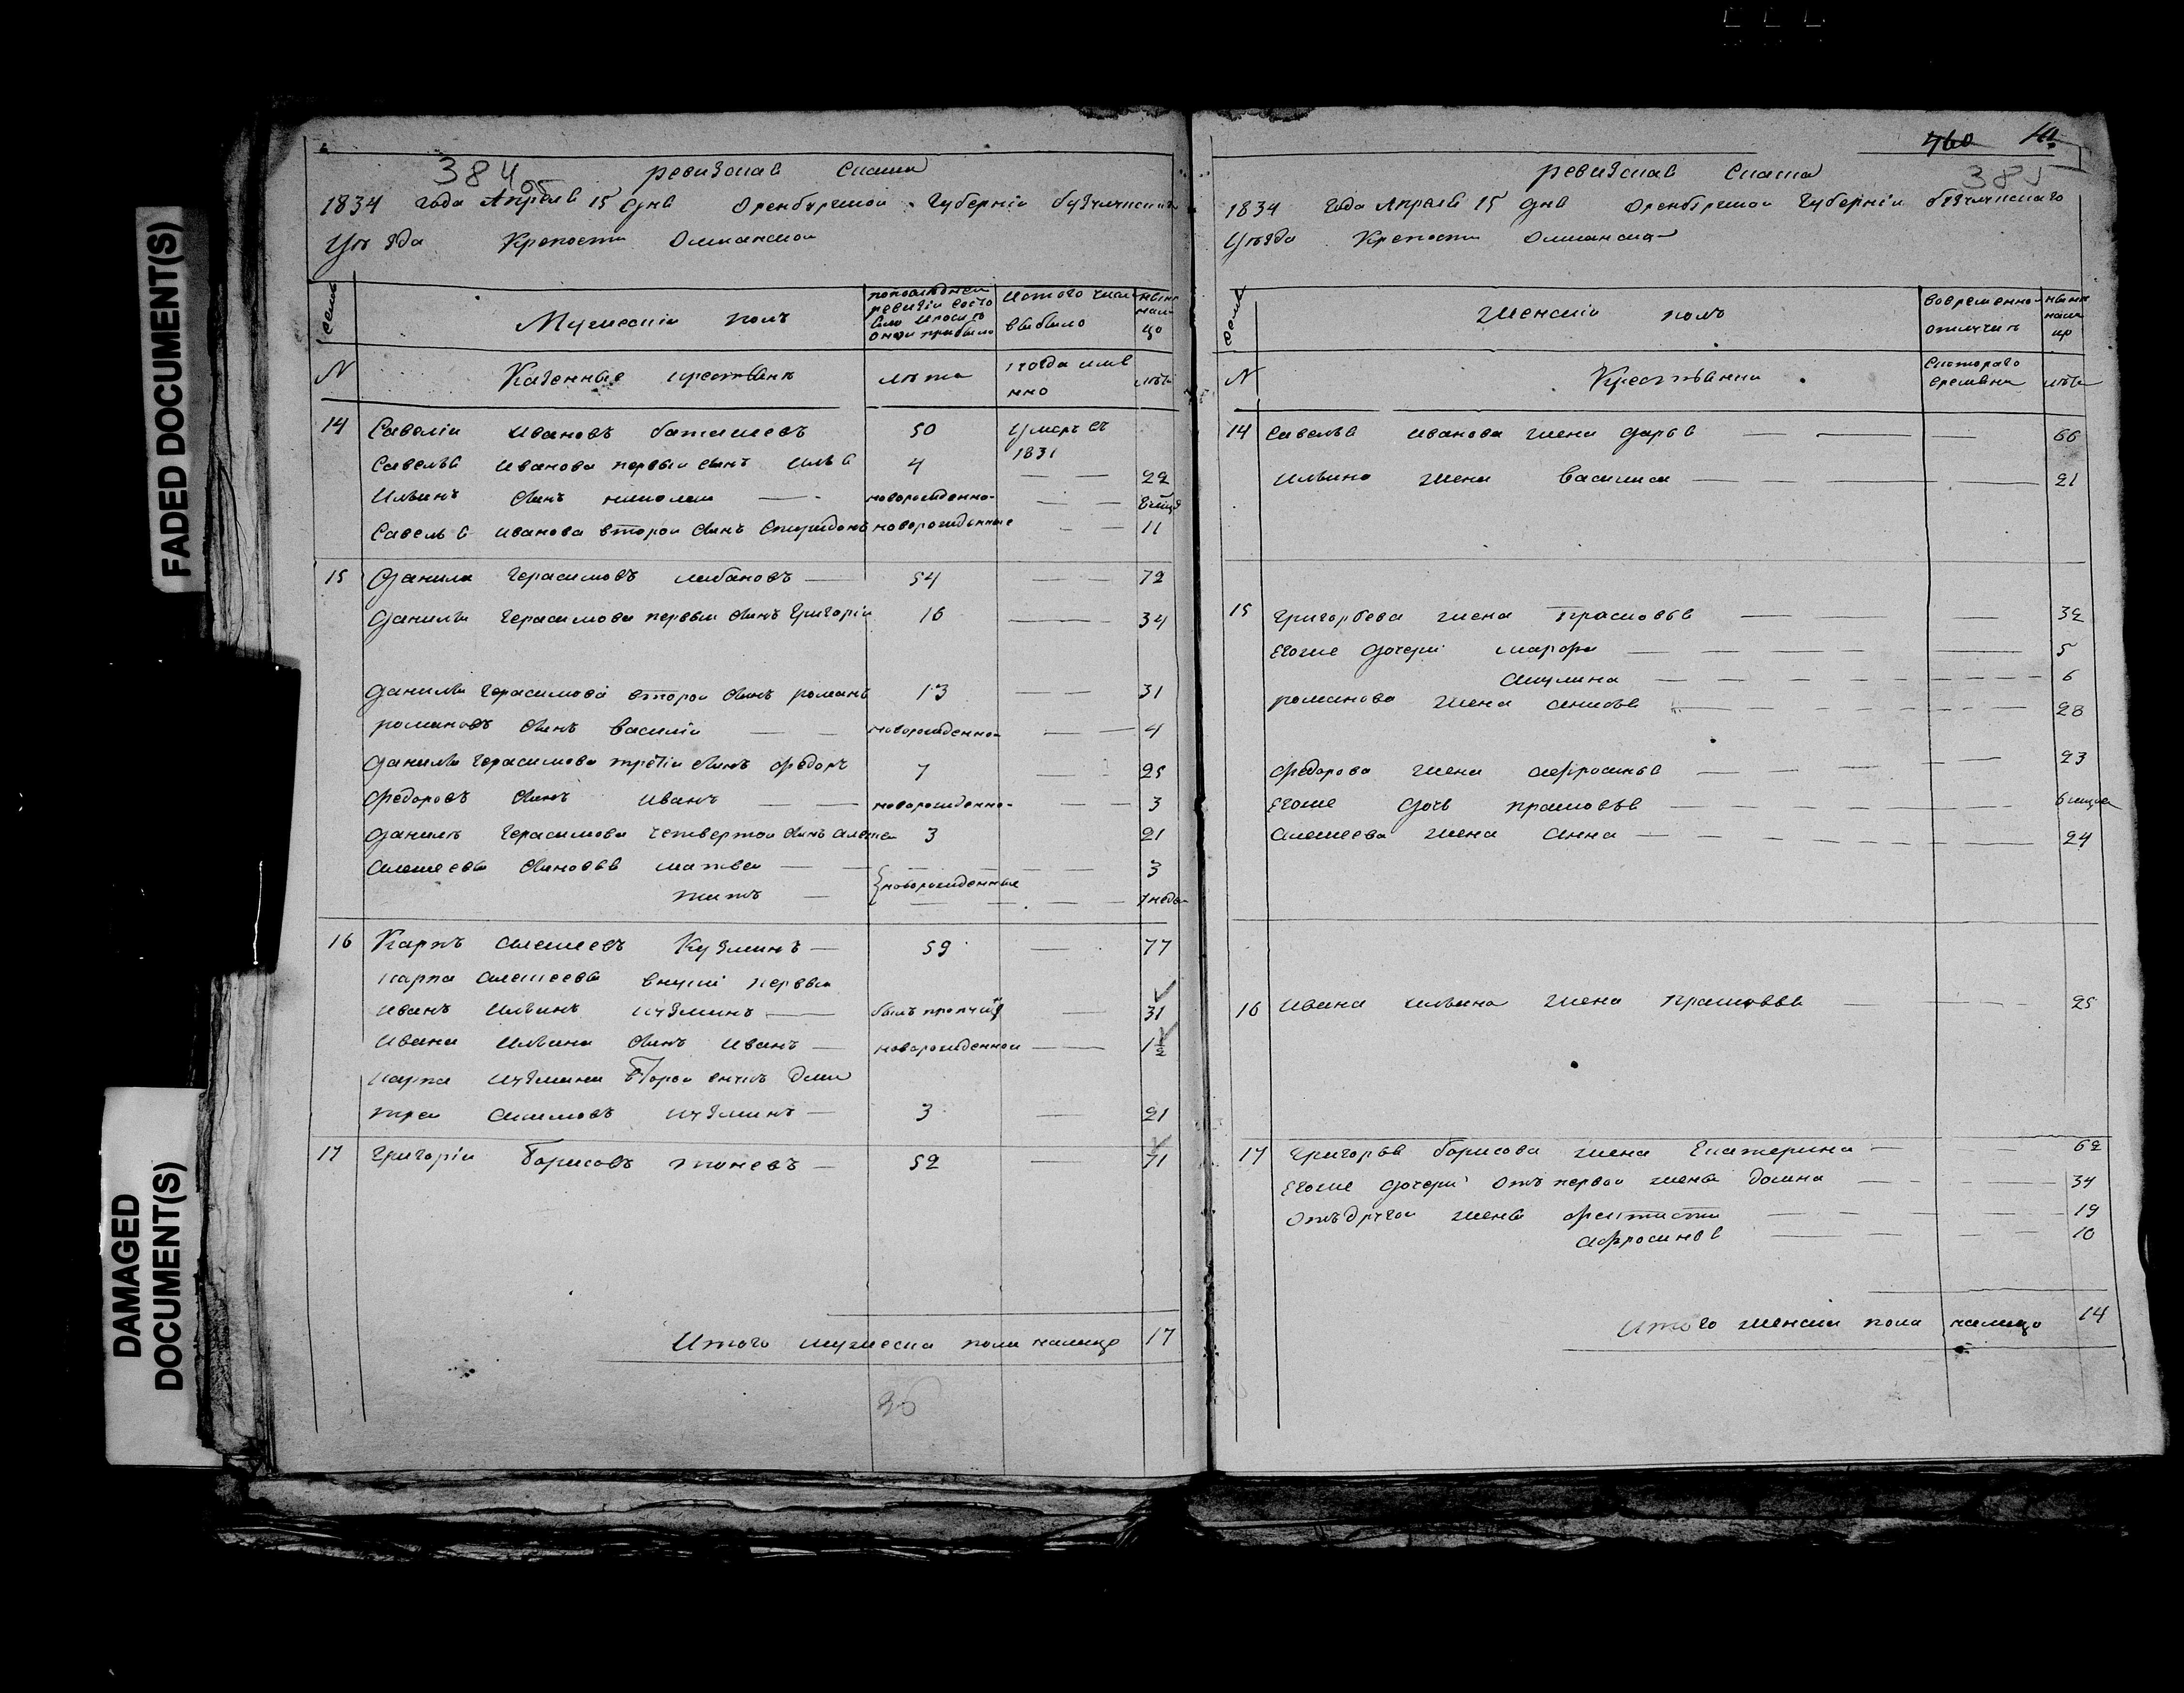 FADED DOCUMENT(S)
DAMAGED
DOCUMENT(S)
384об
ревизская Скаска
1834 года Апреля 15 дня Оренбургской Губернiи бузулукскаго
Уѣзда Крепости Олшанской
семьи
Мужескiй полъ
попоследней
ревизiи состо
яло и после
оной прибыло
Изтого числа
выбыло
ныне
нали
цо
N
Казенные крестьяне
лѣта
когда имя
нно
лѣта
14 Савелiй Ивановъ баташевъ 50 Умеръ въ
1831
Савелья Иванова первый сынъ Илья 4 22
Ильинъ сынъ николай новорожденно-
Савелья Иванова второй сынъ Спиридонъ новорожденные 11
15 Данила Герасимовъ лобановъ 54 72
Данилы Герасимова первый сынъ Григорiй 16 34
Данилы Герасимова второй сынъ романъ 13 31
романовъ сынъ василiй новорожденно- 4
Данилы Герасимова третiй сынъ Федоръ 7 25
Федоровъ сынъ иванъ новорожденно- 3
Данилы Герасимова четвертой сынъ алексей 3 21
алексеевы сыновья матвей 3
титъ новорожденные 1 недел
16 Карпъ алексеевъ Кузминъ 59 77
карпа алексеева внуки первый
иванъ ильинъ кузминъ былъ пропущ 31
ивана ильина сынъ иванъ новорожденной 1½
карпа кузмина второй внукъ дми
трей акимовъ кузминъ 3 21
17 Григорiй Борисовъ 52 71
Итого мужеска пола налицо 17
36
460
385
ревизская Скаска
1834 года Апреля 15 дня Оренбургской Губернiи бузулукскаго
Уѣзда Крепости Олшанской
семьи
Женскiй полъ
вовременно-
отлучке
ныне
нали
цо
N
Крестьянки
Скотораго
времяни
лѣта
14 Савелья иванова жена дарья 66
Ильина жена василиса 21
15 Григорьева жена Прасковья 32
Егоже дочери марфа 5
акулина 6
романова жена анисья 28
Федорова жена афросинья 23
Егоже дочь прасковья 6 месяцов
алексеева жена анна 24
16 ивана ильина жена Прасковья 25
17 Григорья борисова жена Екатерина 62
Егоже дочери отъ первой жены домна 34
отъ другой жены фектиста 19
афросинья 10
Итого женска пола налицо 14